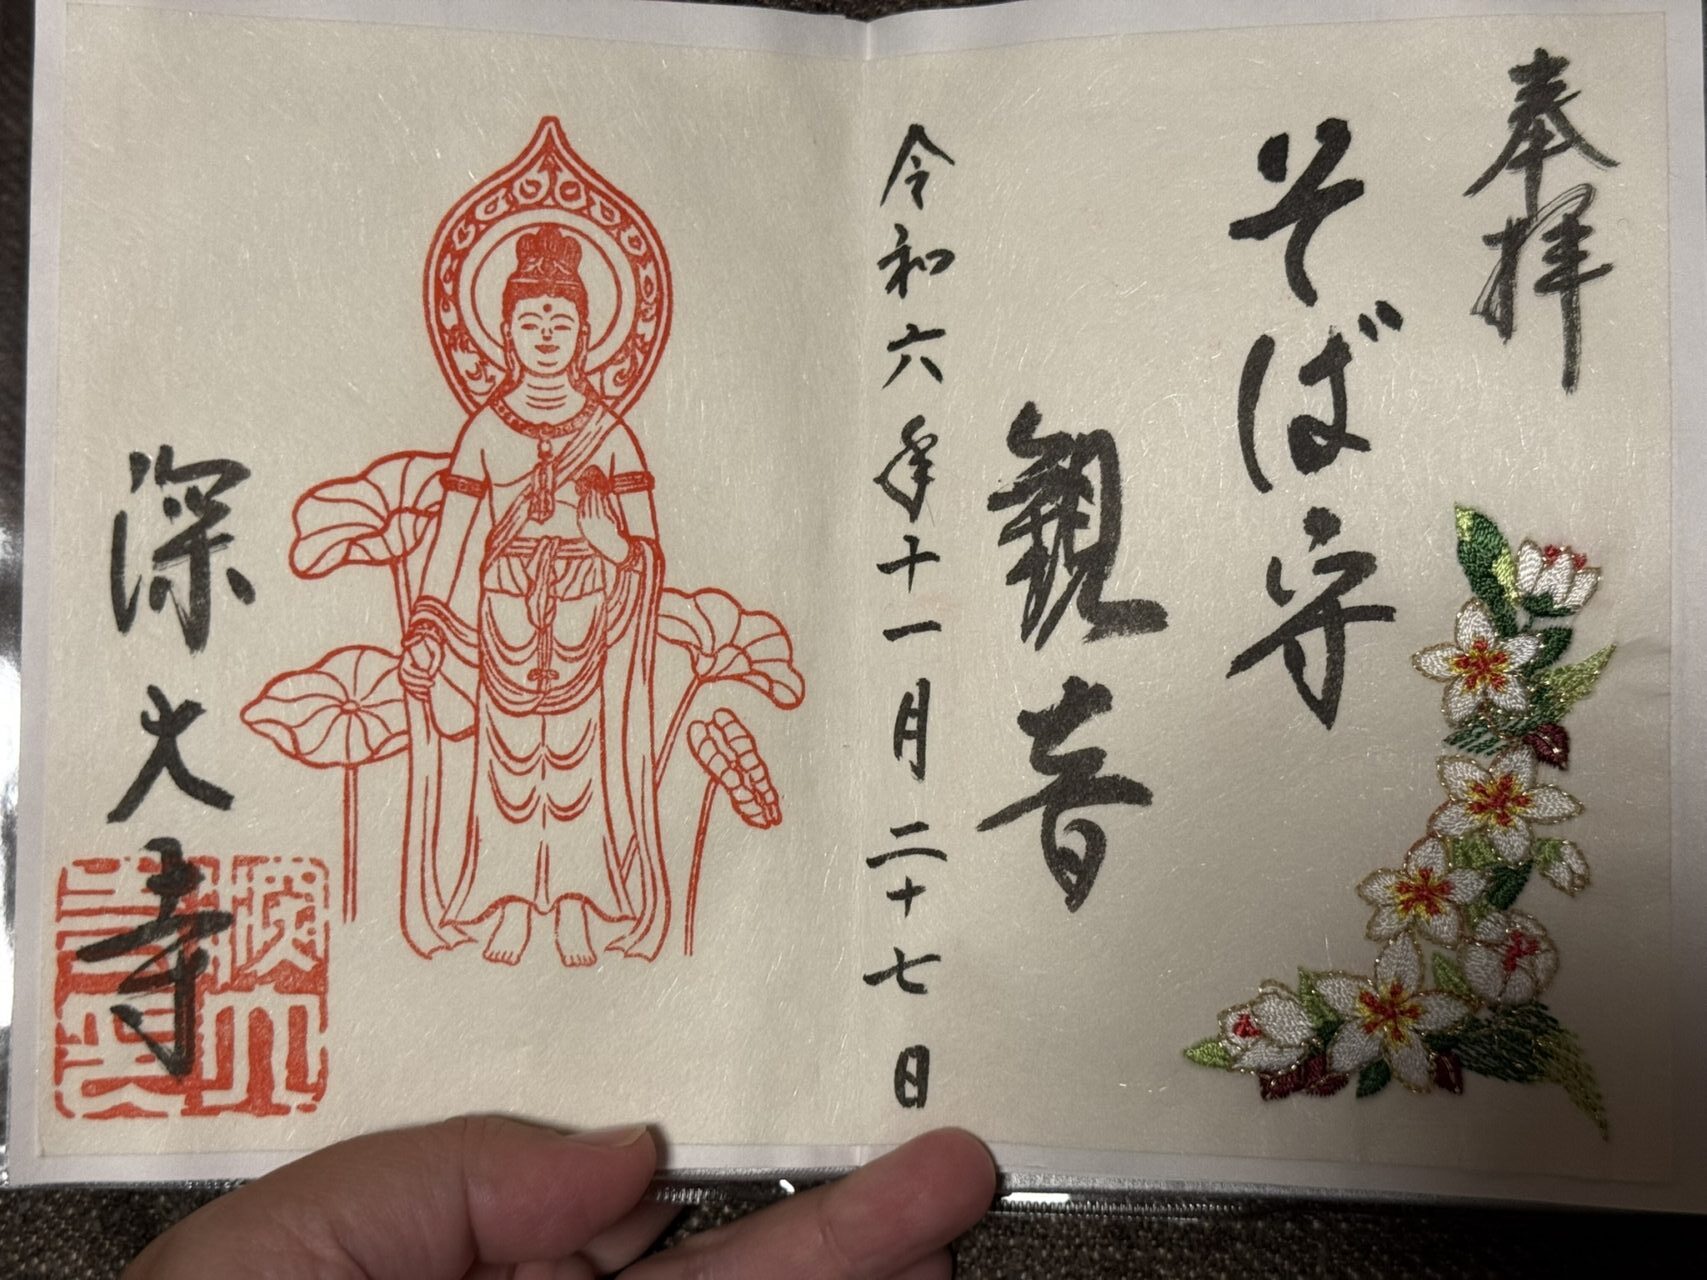 奉拝
そば守
観音
令和六年十一月二十七日
深大寺